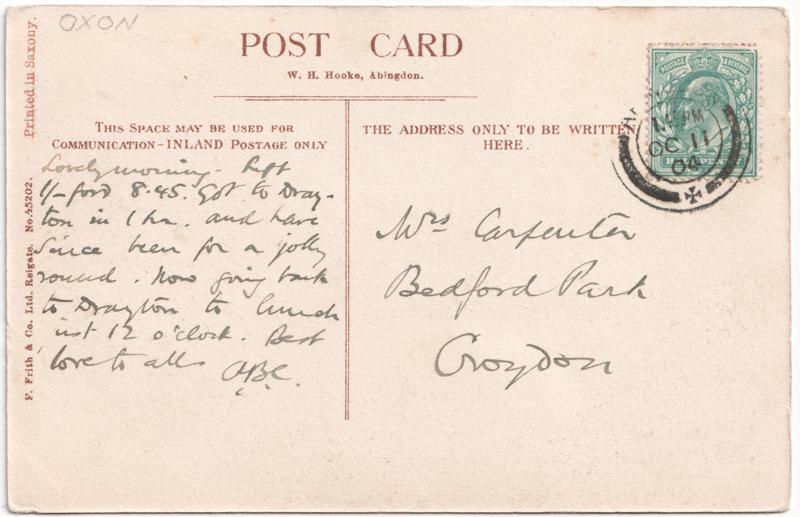 OXON
POST CARD
W. H. Hooke, Abingdon.
Printed in Saxony.
F. Frith & Co. Ltd. Reigate. No. 45202.
THIS SPACE MAY BE USED FOR
COMMUNICATION - INLAND POSTAGE ONLY
THE ADDRESS ONLY TO BE WRITTEN
HERE.
Lovely morning. Left
1/- ford 8.45. Got to Dray-
ton in 1 hr. and have
since been for a jolly
round. Now going back
to Drayton to lunch
just 12 o'clock. Best
love to all
Mrs Carpenter
Bedford Park
Croydon
POSTAGE & REVENUE
HALFPENNY
AM
OC 11
04